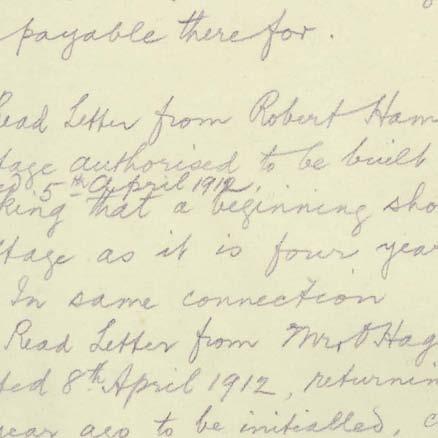 payable therefor.
Read Letter from Robert Ham
tage authorised to be built
5th April 1912,
king that a beginning sho
tage as it is four year
In same connection
Read Letter from Mr. Hag
ted 8th April 1912, returnin
year ago to be initialled, c